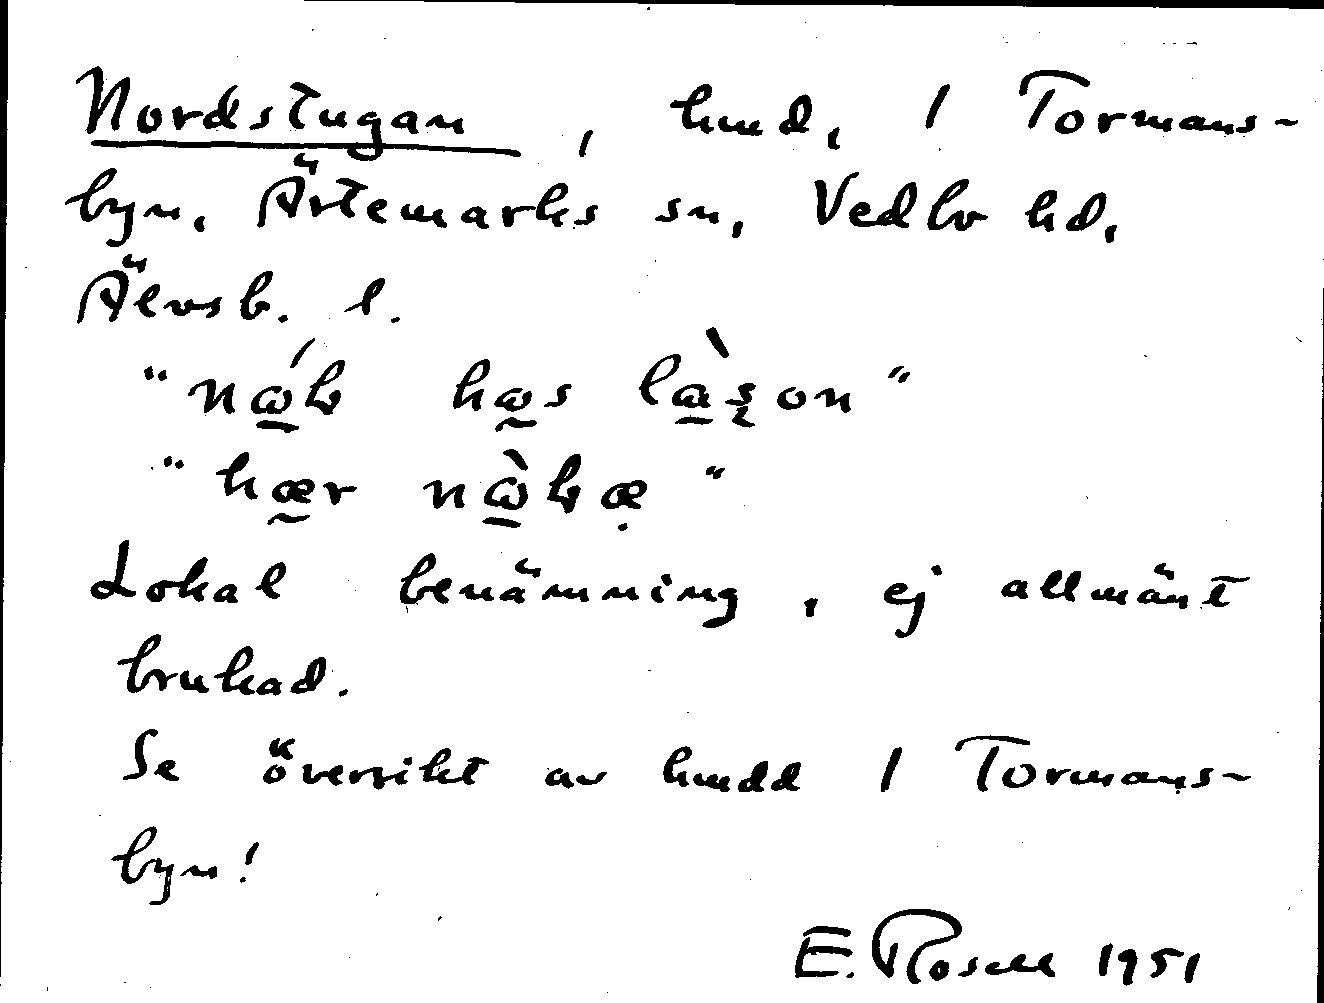 Nordstugan, hmd, 1 Tormans-
byn, Ärtemarks sn, Vedbo hd,
Älvsb. l.
"
"
Lokal benämning, ej allmänt
brukad.
Se översikt av hmdd 1 Tormans-
byn!
E. Rosell 1951